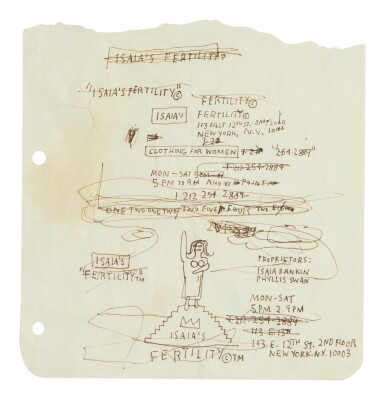 ISAIA'S FERTILITY
"ISAIA'S FERTILITY"©
FERTILITY©
ISAIA'S
FERTILITY©
113 EAST 12TH ST. 2ND FLOOR
NEW YORK, N.Y. 10003
CLOTHING FOR WOMEN 1-212 "254-2889"
1-212-254-2889
MON-SAT
5PM TO 9PM
1 212 254 2889
ONE TWO ONE TWO TWO FIVE FOUR TWO
ISAIA'S
"FERTILITY"™
PROPRIETORS:
ISAIA RANKIN
PHYLLIS SWAN
MON-SAT
5PM 2 9PM
1-212-254-2889
113 E. 13TH
113 E. 12TH ST. 2ND FLOOR
NEW YORK. N.Y. 10003
ISAIA'S
FERTILITY©TM